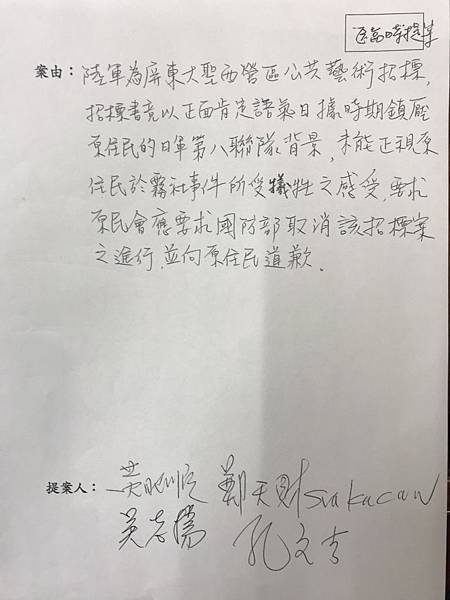 臨時提案
案由：陸軍為屏東大聖西營區公共藝術招標，
招標書竟以正面肯定語氣日據時期鎮壓
原住民的日軍第八聯隊背景，未能正視原
住民於霧社事件所受犧牲之感受，要求
原民會應要求國防部取消該招標案
之進行，並向原住民道歉．
提案人：黃昭順 鄭天財Sra Kacaw
吳志揚 孔文吉